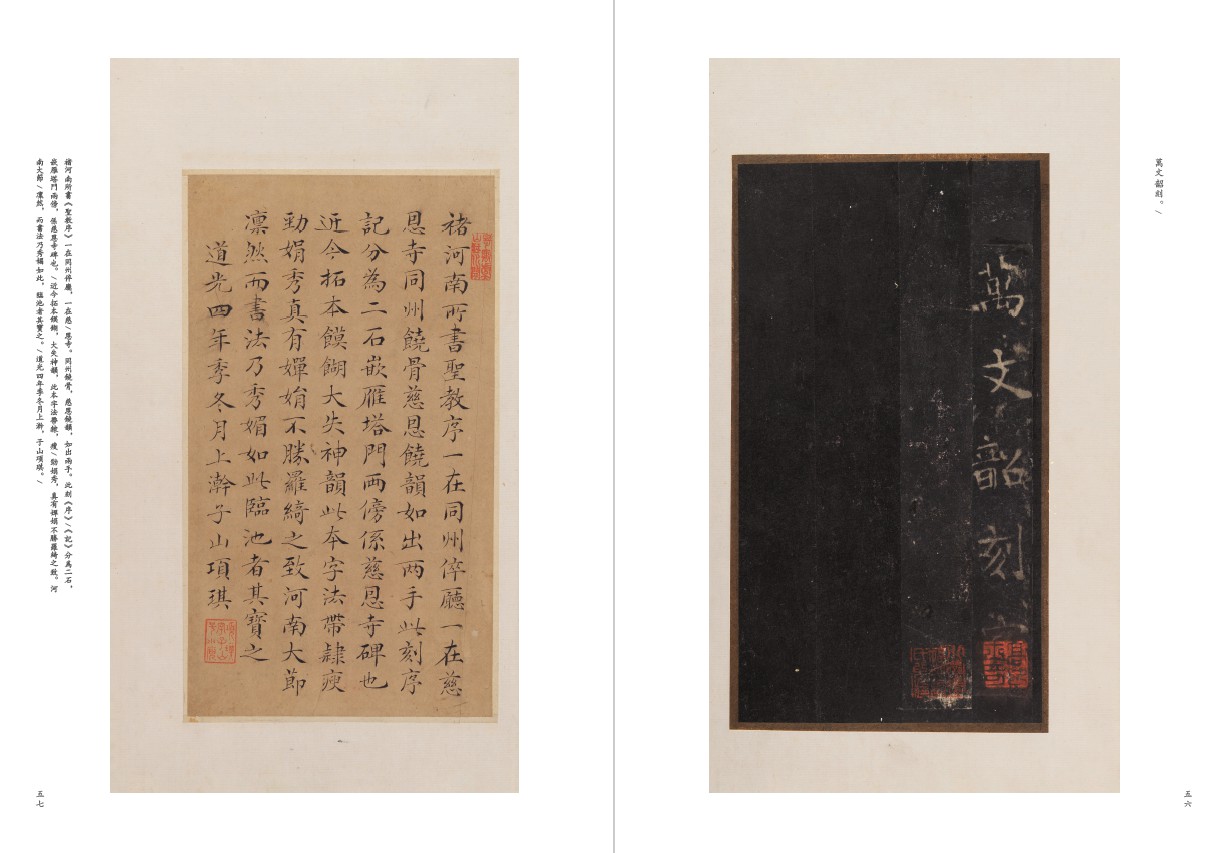 萬文韶刻。/
萬文韶刻
五六
褚河南所書聖教序一在同州倅廳一在慈
恩寺同州饒骨慈恩饒韻如出两手此刻序
記分為二石嵌雁塔門兩傍係慈恩寺碑也
近今拓本饃餬大失神韻此本字法帶隸瘦
勁娟秀真有嬋娟不勝羅綺之致河南大節
凛然而書法乃秀媚如此臨池者其寶之
道光四年季冬月上澣子山項琪
褚河南所書《聖教序》一在同州倅廳,一在慈/恩寺。同州饒骨,慈恩饒韻,如出兩手。此刻《序》/《記》分爲二石,
嵌雁塔門兩傍,係慈恩寺碑也。/近今拓本饃餬,大失神韻,此本字法帶隸,瘦/勁娟秀,真有嬋娟不勝羅綺之致。河
南大節/凛然,而書法乃秀媚如此,臨池者其寶之。/道光四年季冬月上澣,子山項琪。/
五七